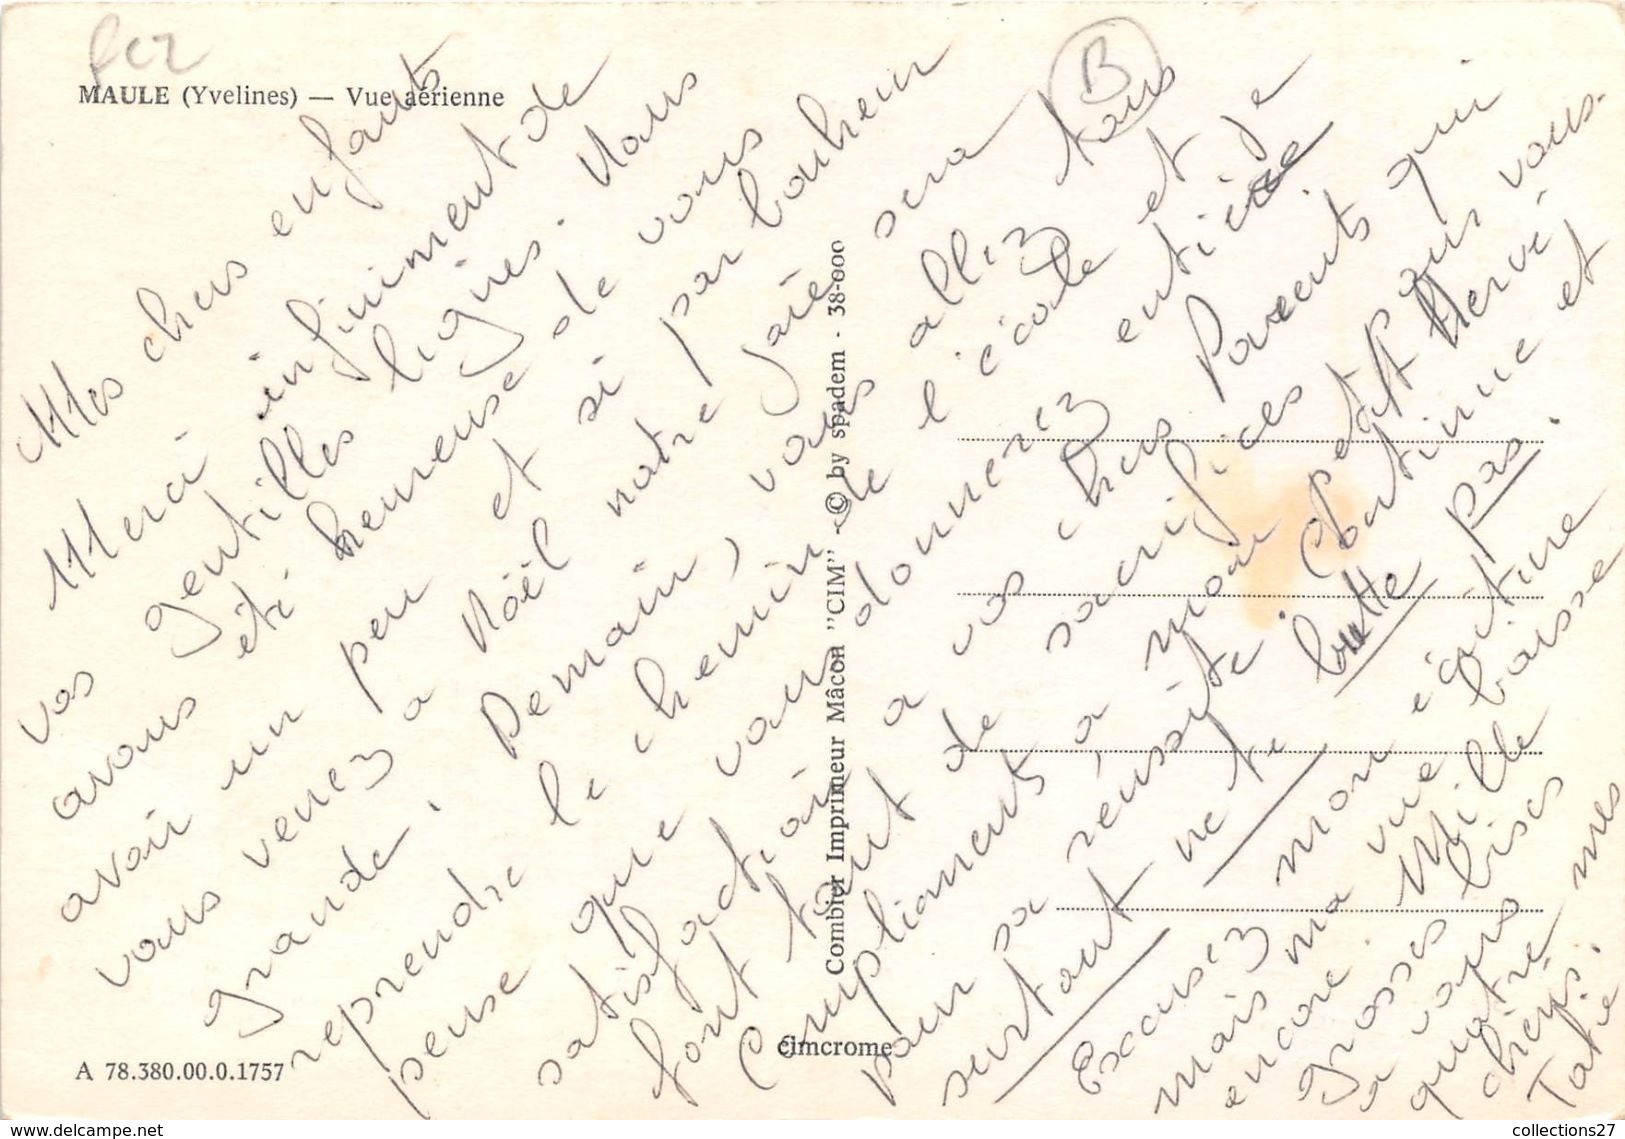 MAULE (Yvelines) — Vue aérienne
B
Mes chers enfants
Merci infiniment de
vos gentilles lignes. Nous
avons été heureuse de vous
avoir un peu et si par bonheur
vous venez a Noël notre joie sera
grande. Demain, vous allez tous
reprendre le chemin de l'école et je
pense que vous donnerez entière
satisfaction a vos chers Parents qui
font tant de sacrifices pour vous.
Compliments a mon petit Hervé
pour sa réussite. Continue et
surtout ne te butte pas.
Excusez mon écriture
mais ma vue baisse
encore. Mille
grosses bises
a vous
quatre mes
chéris.
Tatie
Combier Imprimeur Mâcon "CIM" - © by spadem - 38-000
cimcrome
A 78.380.00.0.1757
www.delcampe.net
collections27